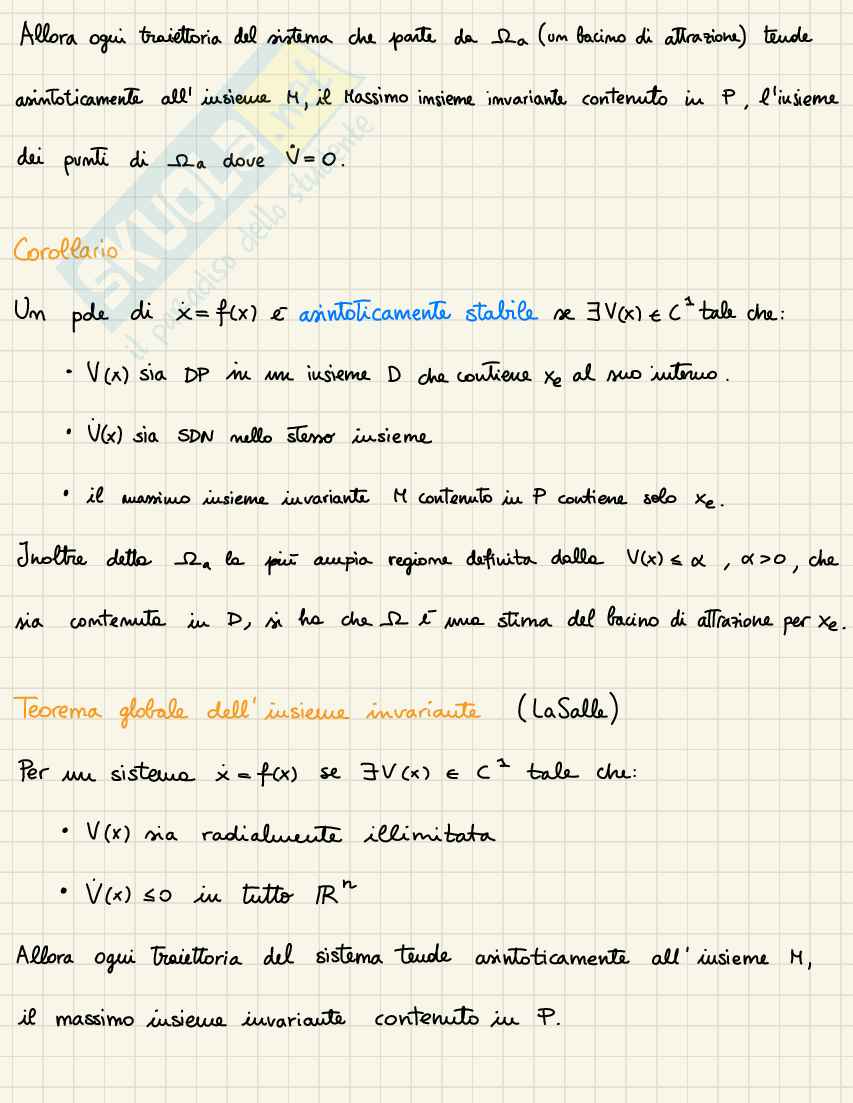 Allora ogni traiettoria del sistema che parte da Ωa (un bacino di attrazione) tende
asintoticamente all'insieme M, il Massimo insieme invariante contenuto in P, l'insieme
dei punti di Ωa dove V̇=0.
SKUOLA.net
il paradiso dello studente
Corollario
Un pde di ẋ=f(x) è asintoticamente stabile se ∃V(x) ∈ C¹ tale che:
• V(x) sia DP in un insieme D che contiene xe al suo interno.
• V̇(x) sia SDN nello stesso insieme
• il massimo insieme invariante M contenuto in P contiene solo xe.
Inoltre detta Ωa la più ampia regione definita dalla V(x) ≤ α, α>0, che
sia contenuta in D, si ha che Ω è una stima del bacino di attrazione per xe.
Teorema globale dell'insieme invariante (LaSalle)
Per un sistema ẋ=f(x) se ∃V(x) ∈ C¹ tale che:
• V(x) sia radialmente illimitata
• V̇(x) ≤0 in tutto ℝⁿ
Allora ogni traiettoria del sistema tende asintoticamente all'insieme M,
il massimo insieme invariante contenuto in P.